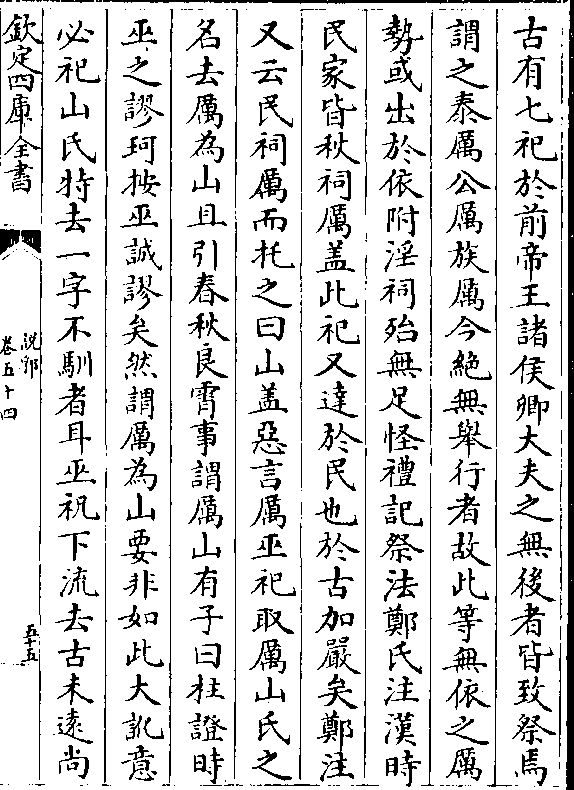 古有七祀於前帝王諸侯卿大夫之無後者皆致祭焉
謂之泰厲公厲族厲今絶無舉行者故此等無依之厲
勢或出於依附淫祠殆無足怪禮記祭法鄭氏注漢時
民家皆秋祠厲盖此祀又達於民也於古加嚴矣鄭注
又云民祠厲而托之曰山盖惡言厲巫祀取厲山氏之
名去厲為山且引春秋良霄事謂厲山有子曰柱證時
巫之謬珂按巫誠謬矣然謂厲為山要非如此大訛意
必祀山氏特去一字不馴者耳巫祝下流去古未遠尚
欽定四庫全書
說郛
卷五十四
五十五